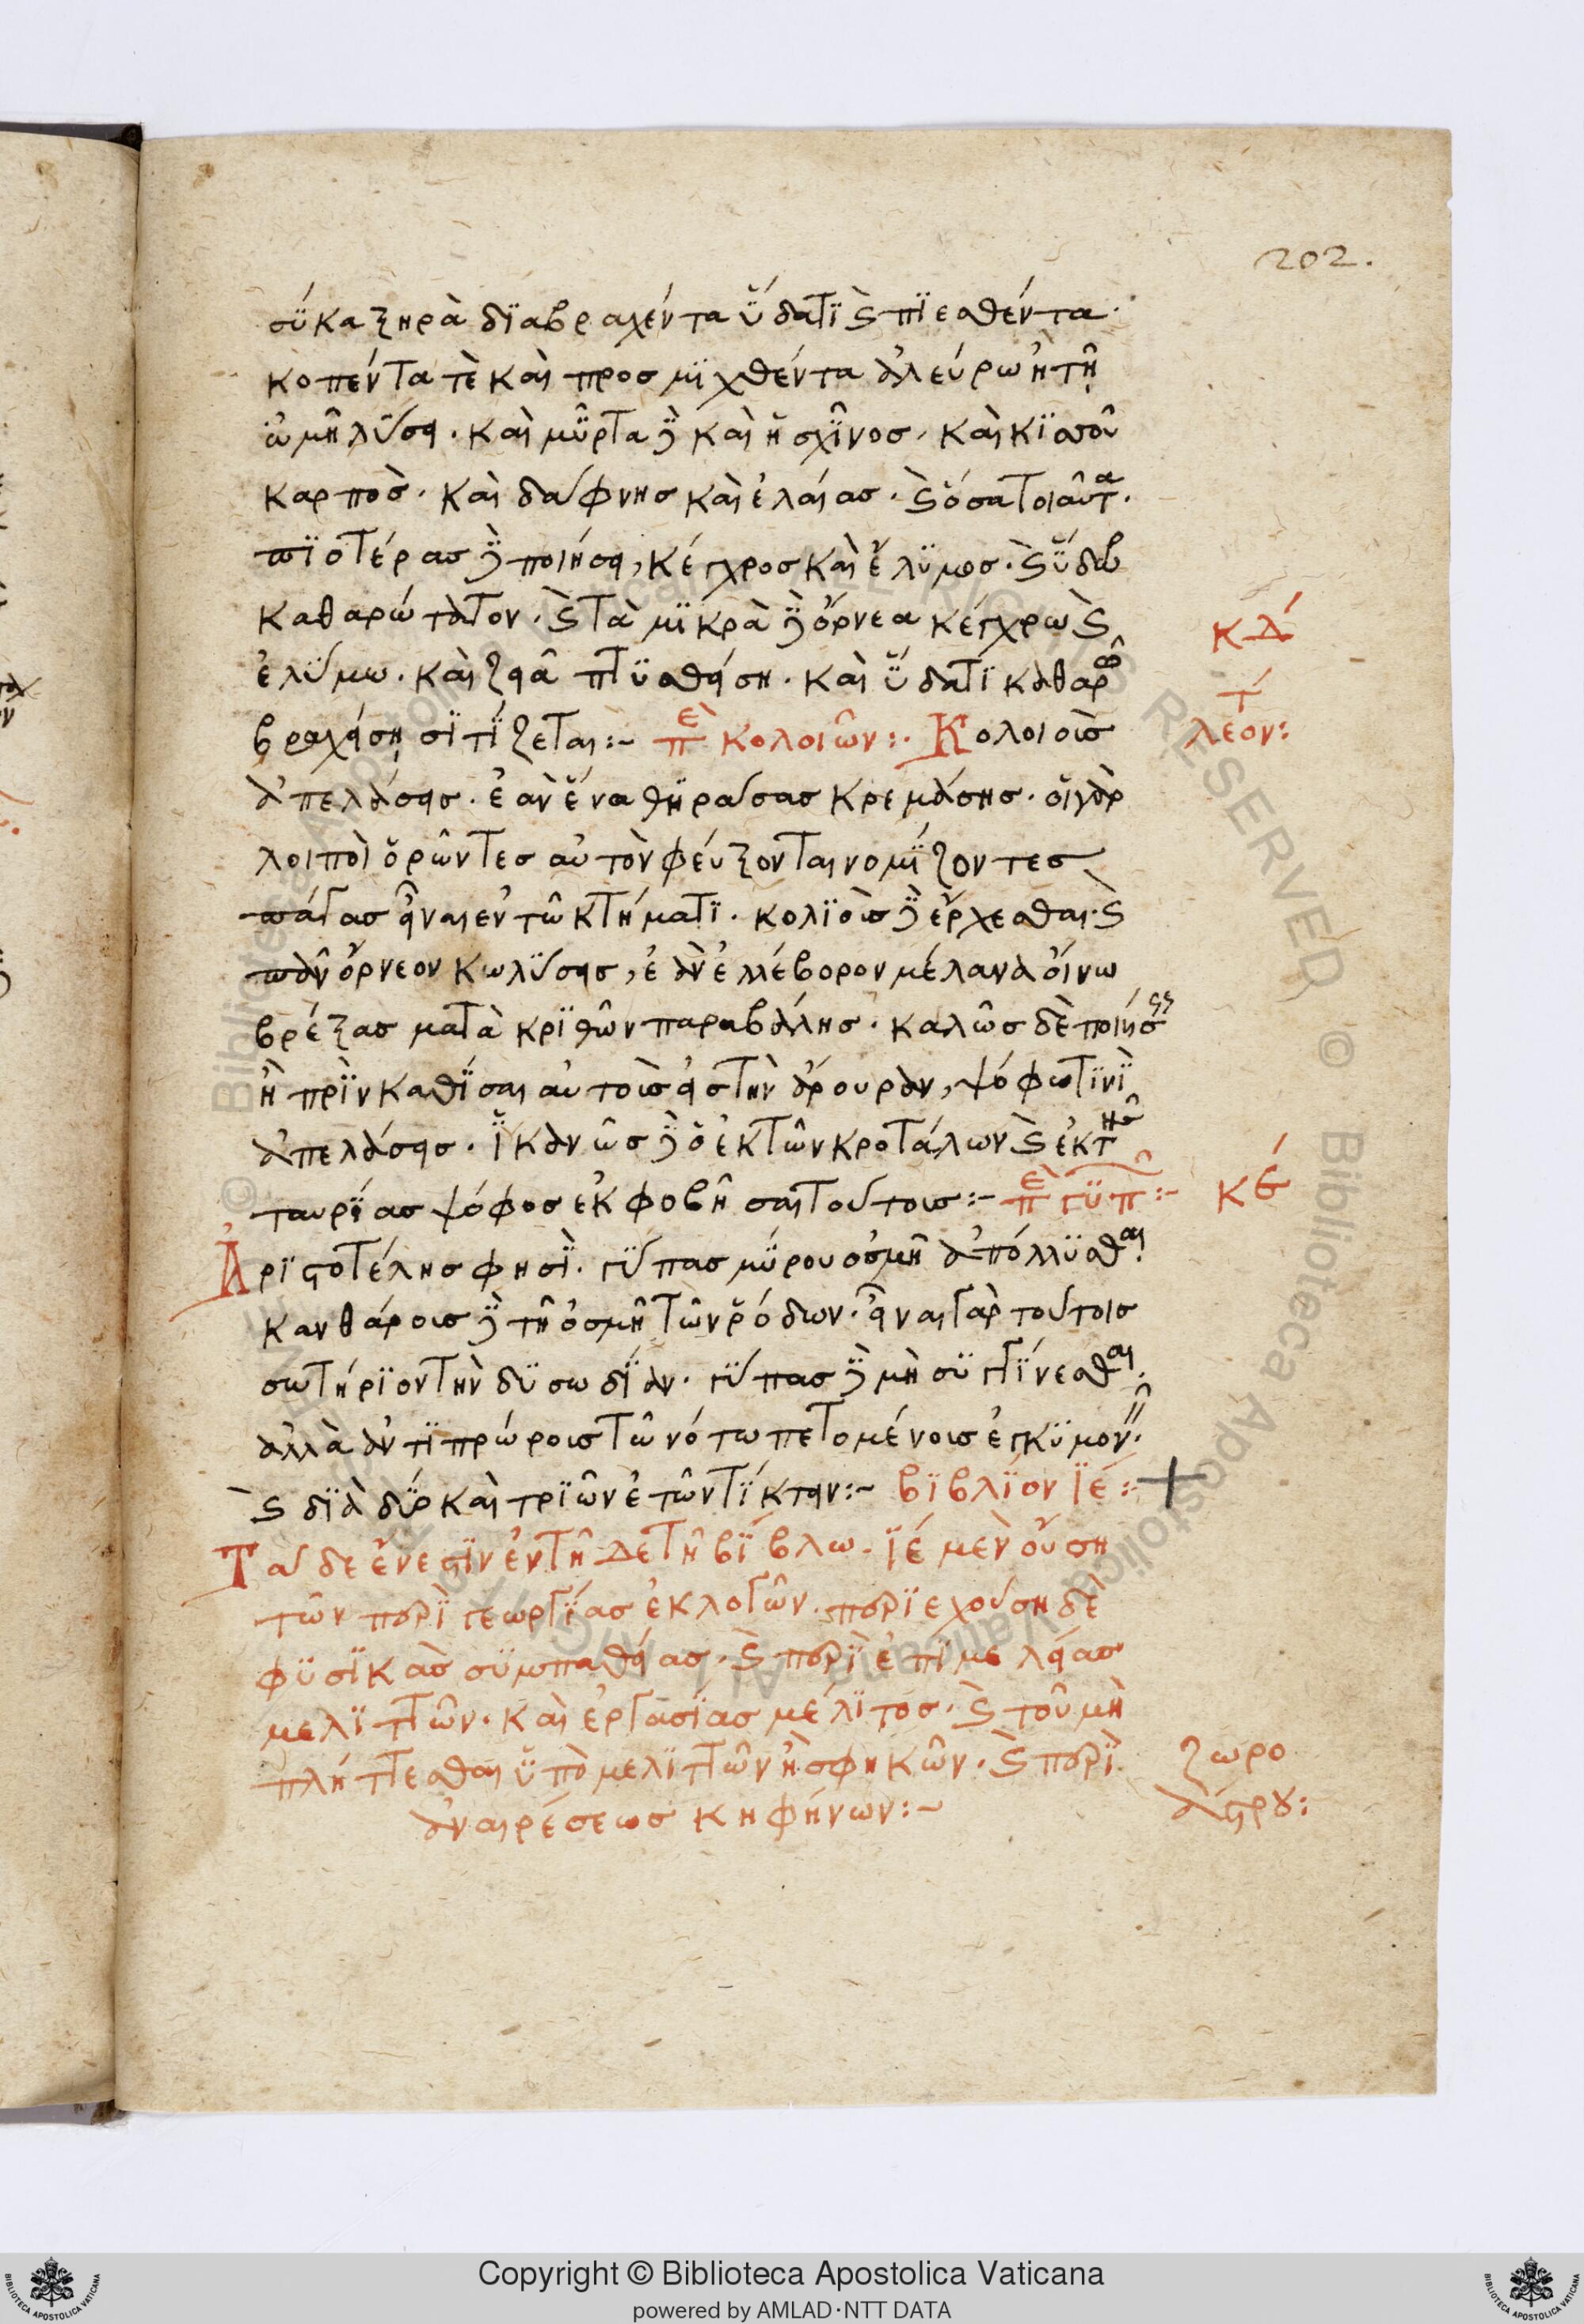 202.
σύκα ξηρὰ διαβραχέντα ὕδατι καὶ πιεσθέντα·
κοπέντα τὲ καὶ προσμιχθέντα ἀλεύρω ἢ τῆ
ὠμῆ λύσει. καὶ μύρτα δὲ καὶ ἡ σχῖνος, καὶ κισσοῦ
καρπὸς. καὶ δάφνης καὶ ἐλαίας. καὶ ὅσα τοιαῦτα.
πιοτέρας δὲ ποιήσει, κέγχρος καὶ ἔλυμος. καὶ ὕδωρ
καθαρώτατον. καὶ τὰ μικρὰ δὲ ὄρνεα κέγχρω καὶ
κδ΄
ἐλύμω. καὶ ζειᾶ πτισθείση. καὶ ὕδατι καθαρῶ
βραχείση σιτίζεται:~ περὶ κολοιῶν:· Κολοιοὺς
λέοντ:
ἀπελάσεις. ἐὰν ἕνα θηράσας κρεμάσης. οἱ γὰρ
λοιποὶ ὁρῶντες αὐτὸν φεύξονται νομίζοντες
πάγας εἶναι ἐν τῶ κτήματι. κολιοὺς δὲ ἔρχεσθαι καὶ
πᾶν ὄρνεον κωλύσεις, ἐὰν ἐλλέβορον μέλανα οἴνω
βρέξας μετὰ κριθῶν παραβάλης. καλῶς δὲ ποιήσεις
ἢ πρὶν καθίσαι αὐτοὺς εἰς τὴν ἄρουραν, ψόφω τινὶ
ἀπελάσεις. ἱκανῶς δὲ ὁ ἐκ τῶν κροτάλων καὶ ἐκ τῆς
ταυρίας ψόφος ἐκφοβῆσαι τούτοις:~ περὶ γυπῶν:~
κε΄
Ἀριστοτέλης φησὶ. γύπας μύρου ὀσμῆ ἀπόλλυσθαι.
κανθάροις δὲ τῆ ὀσμῆ τῶν ῥόδων. εἶναι γὰρ τούτοις
σωτήριον τὴν δυσωδίαν. γύπας δὲ μὴ συγγίνεσθαι.
ἀλλὰ ἀντιπρώροις τῶ νότω πετομένοις ἐγκυμονεῖν.
καὶ διὰ δύο καὶ τριῶν ἐτῶν τίκτειν:~ βιβλίον ιέ:~
Τάδε ἔνεστιν ἐν τῆδε τῆ βίβλω. ιέ μὲν οὔση
τῶν περὶ γεωργίας ἐκλογῶν. περιεχούση δὲ
φυσικὰς συμπαθείας. καὶ περὶ ἐπιμελείας
μελιττῶν. καὶ ἐργασίας μέλιτος. καὶ τοῦ μὴ
πλήττεσθαι ὑπὸ μελιττῶν ἢ σφηκῶν. καὶ περὶ
ζωρο
ἀναιρέσεως κηφήνων:~
άστρου:
Copyright © Biblioteca Apostolica Vaticana
powered by AMLAD·NTT DATA